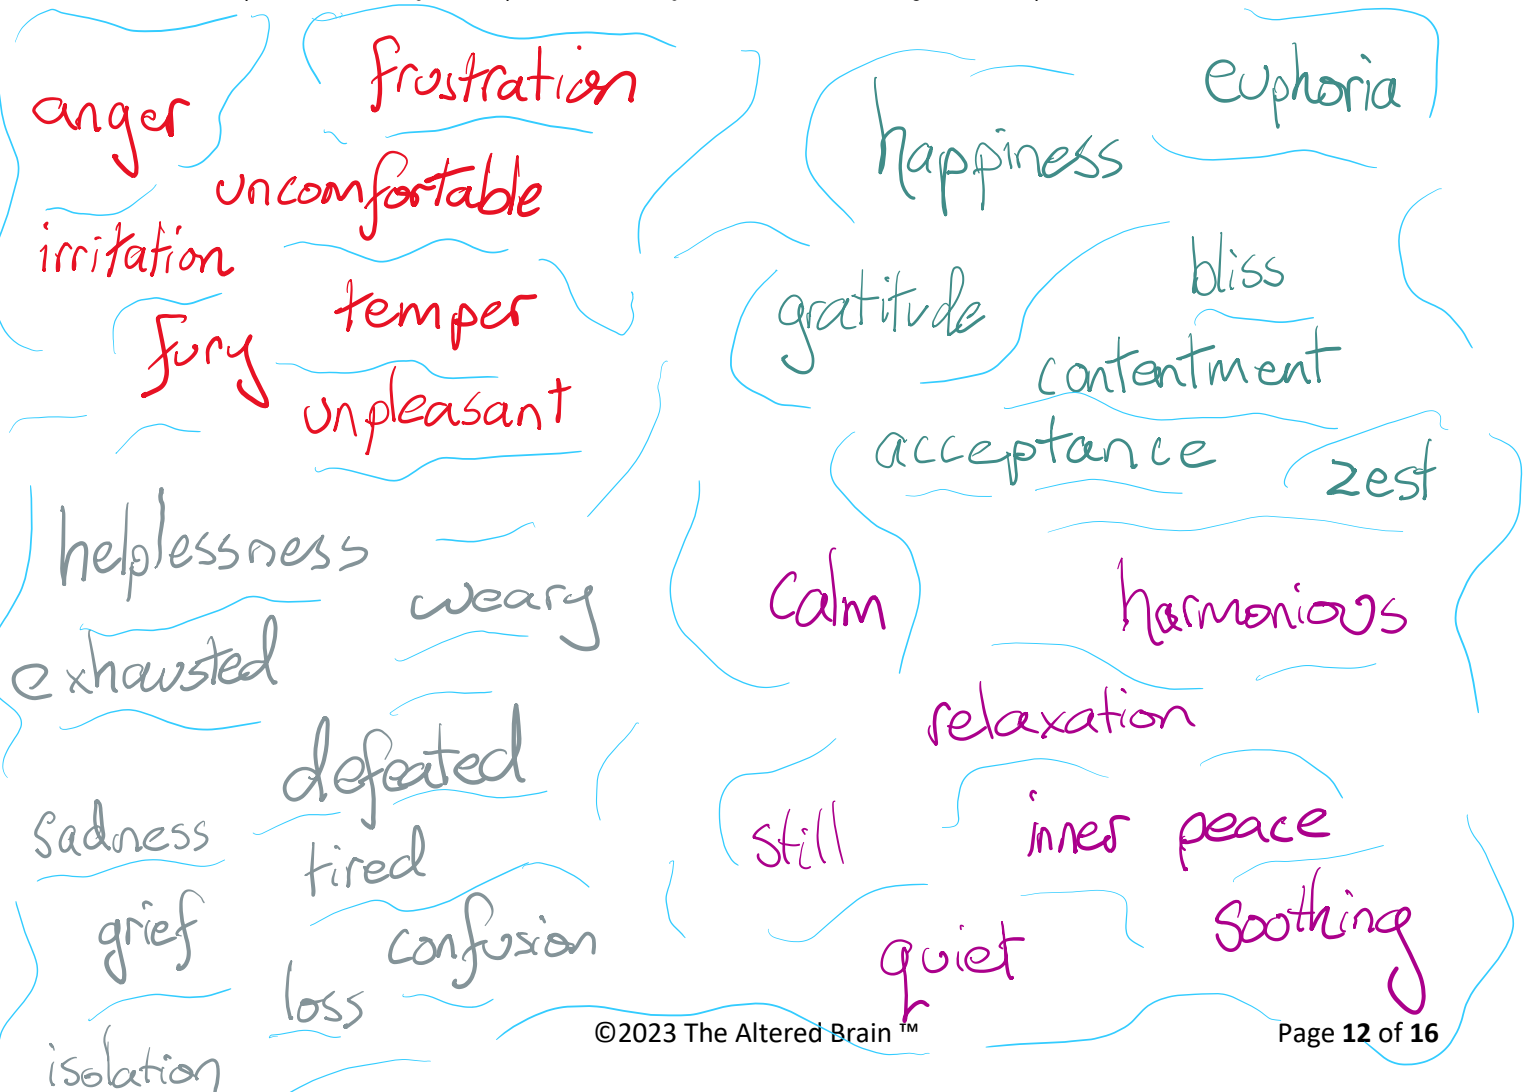 anger
frustration
uncomfortable
irritation
temper
fury
unpleasant
happiness
euphoria
gratitude
bliss
contentment
acceptance
zest
helplessness
weary
exhausted
defeated
sadness
tired
grief
confusion
loss
isolation
calm
harmonious
relaxation
still
inner peace
quiet
soothing
©2023 The Altered Brain ™
Page 12 of 16